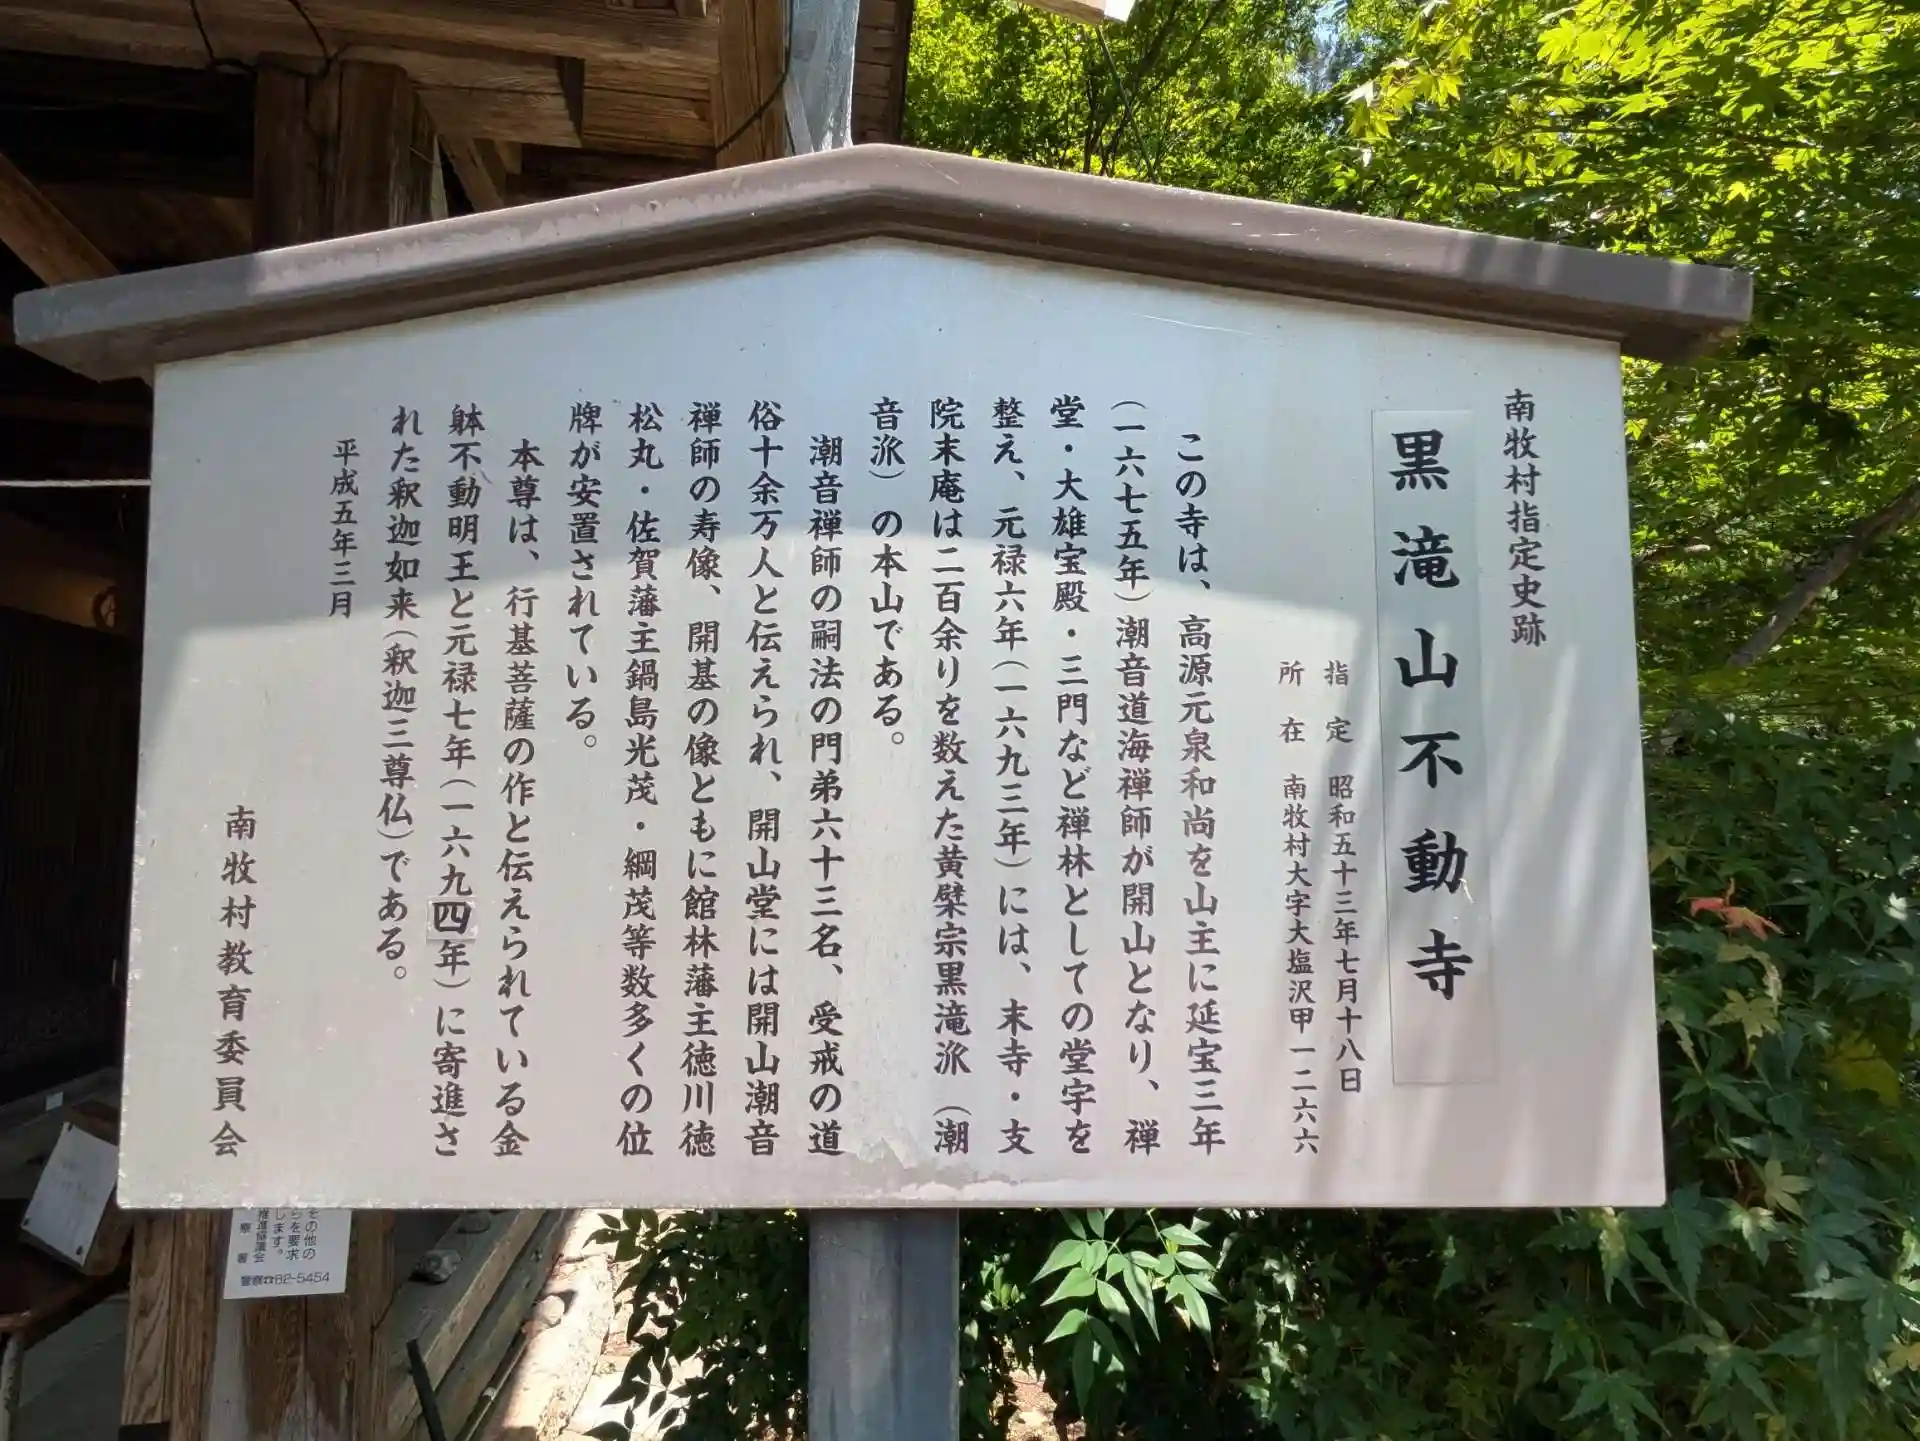 南牧村指定史跡
黒滝山不動寺
指定 昭和五十三年七月十八日
所在 南牧村大字大塩沢甲一二六六
この寺は、高源元泉和尚を山主に延宝三年
(一六七五年)潮音道海禅師が開山となり、禅
堂・大雄宝殿・三門など禅林としての堂宇を
整え、元禄六年(一六九三年)には、末寺・支
院末庵は二百余りを数えた黄檗宗黒滝派(潮
音派)の本山である。
潮音禅師の嗣法の門弟六十三名、受戒の道
俗十余万人と伝えられ、開山堂には開山潮音
禅師の寿像、開基の像ともに館林藩主徳川徳
松丸・佐賀藩主鍋島光茂・綱茂等数多くの位
牌が安置されている。
本尊は、行基菩薩の作と伝えられている金
躰不動明王と元禄七年(一六九四年)に寄進さ
れた釈迦如来(釈迦三尊仏)である。
平成五年三月
南牧村教育委員会
その他の
らを要求
します。
推進協議会
察署
警察☎82-5454